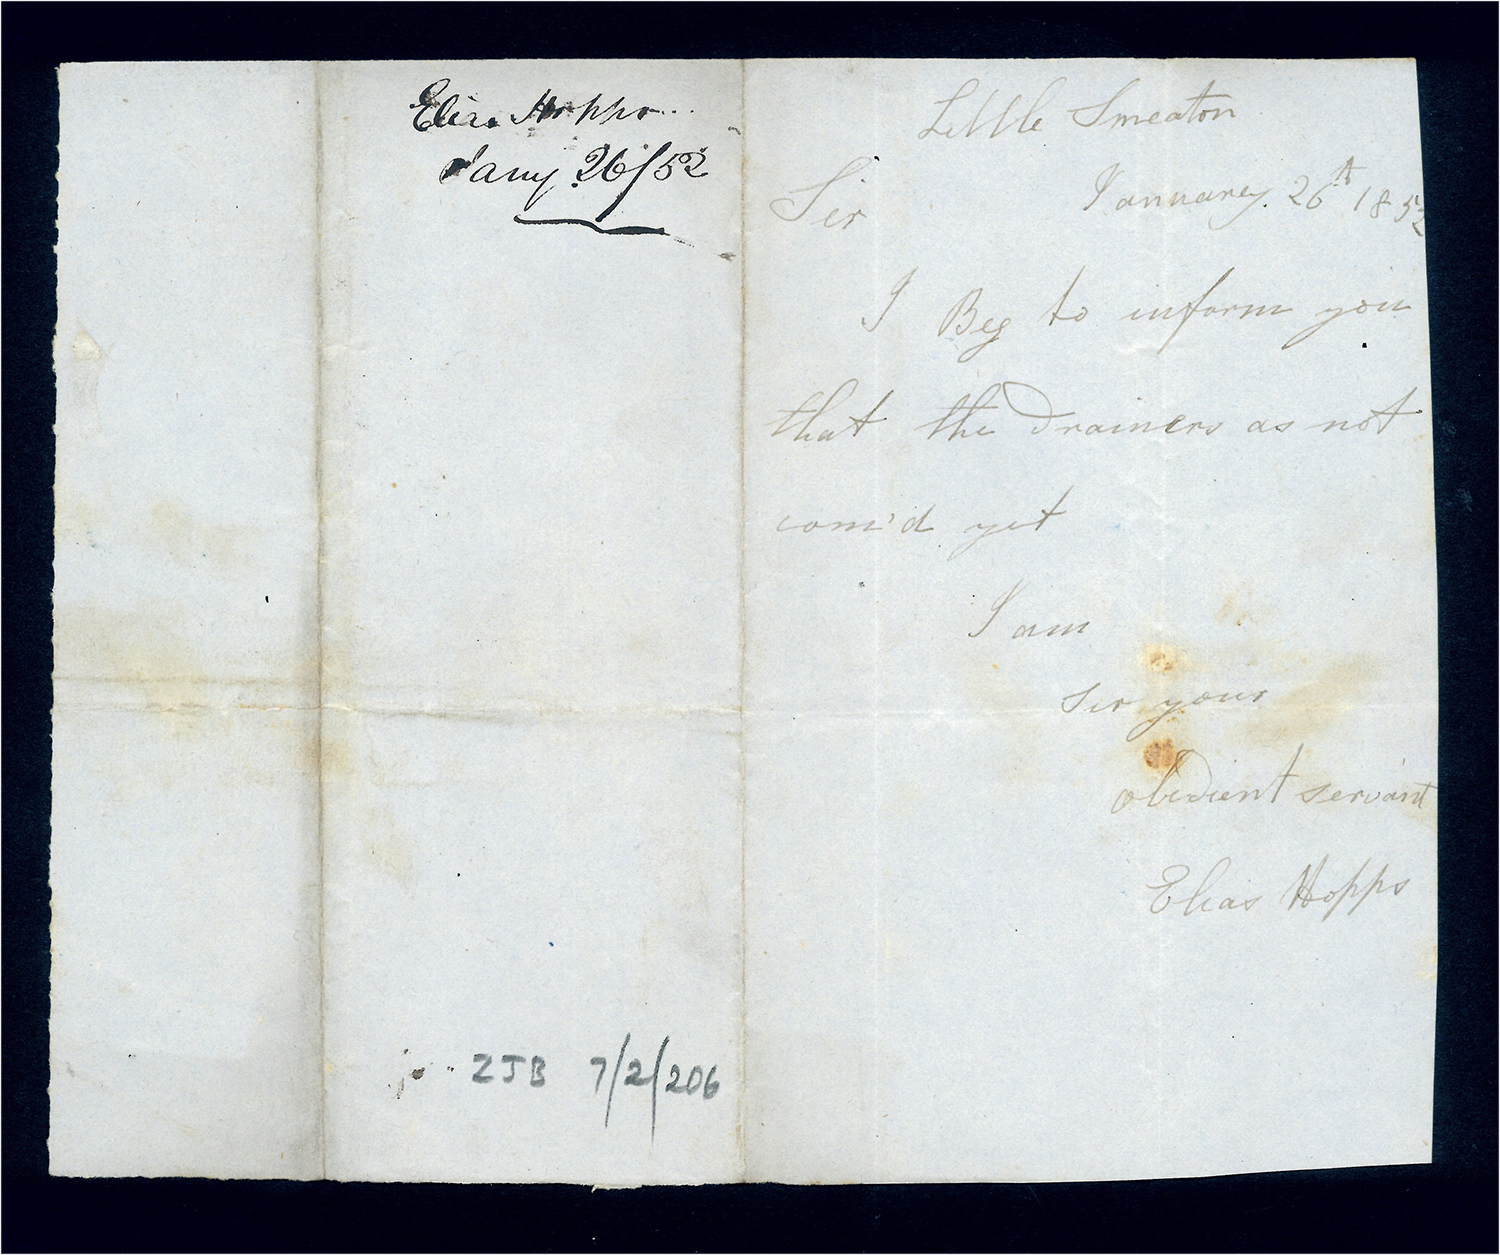 Elias Hopps
Jany 26/52
ZJB 7/2/206
Little Smeaton
Januarey. 26th 1852
Sir
I Beg to inform you
that the Drainers as not
com'd yet
I am
Sir your
obedient servant
Elias Hopps